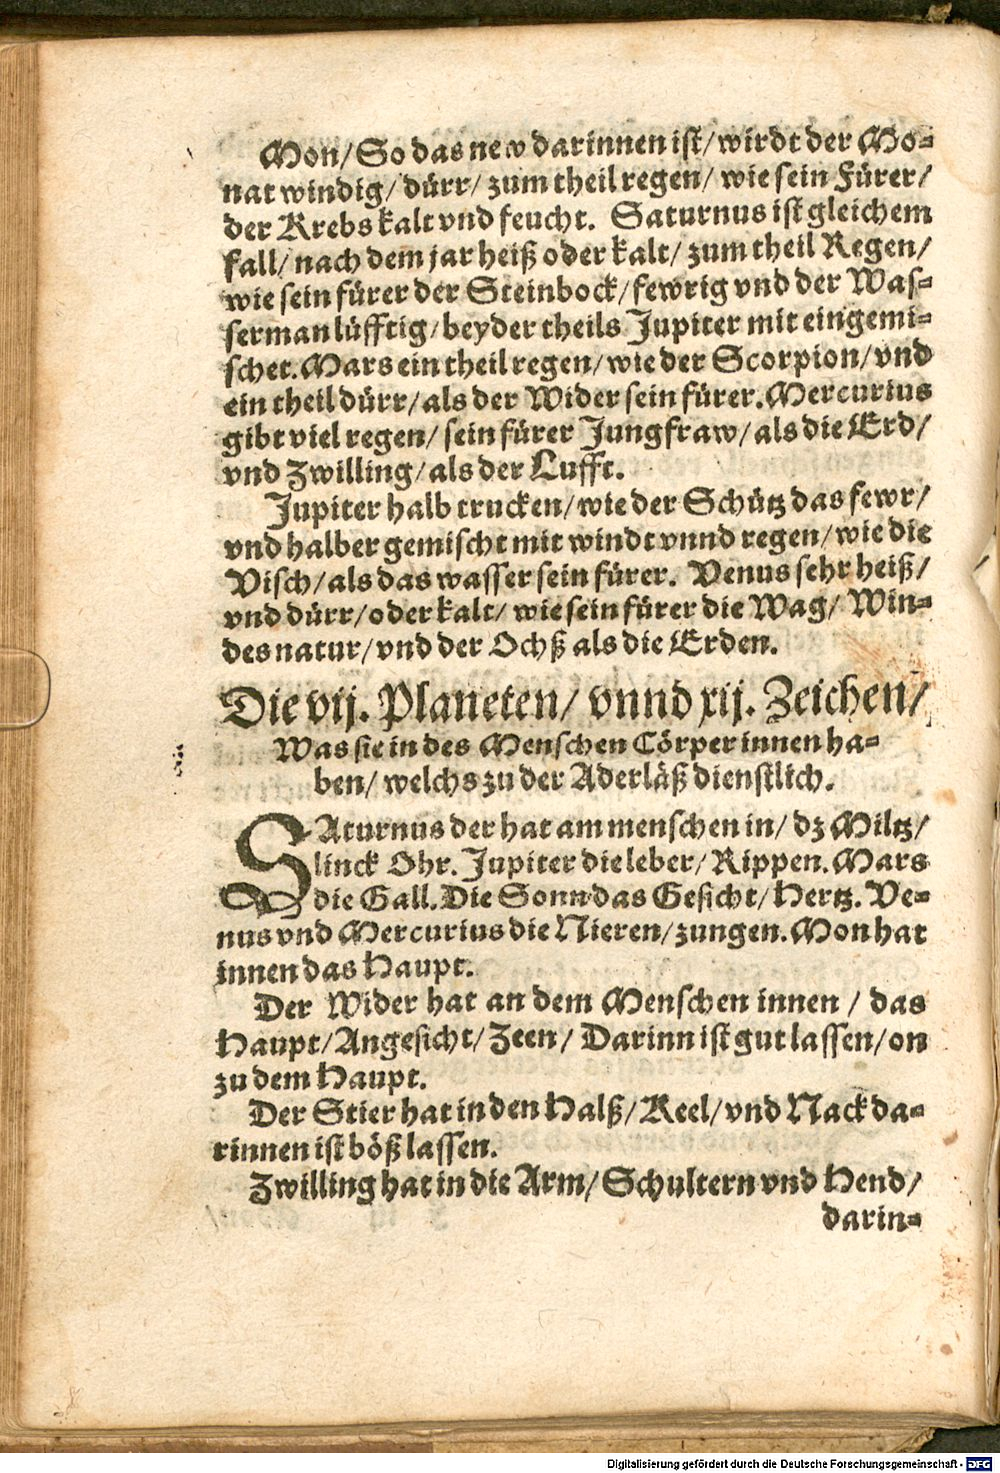 Mon/ So das new darinnen ist/ wirdt der Mo=
nat windig/ dürr/ zum theil regen/ wie sein Fürer/
der Krebs kalt vnd feucht. Saturnus ist gleichem
fall/ nach dem jar heiß oder kalt/ zum theil Regen/
wie sein fürer der Steinbock/ fewrig vnd der Was=
serman lüfftig/ beyder theils Jupiter mit eingemi=
schet. Mars ein theil regen/ wie der Scorpion/ vnd
ein theil dürr/ als der Wider sein fürer. Mercurius
gibt viel regen/ sein fürer Jungfraw/ als die Erd/
vnd Zwilling/ als der Lufft.
Jupiter halb trucken/ wie der Schütz das fewr/
vnd halber gemischt mit windt vnnd regen/ wie die
Visch/ als das wasser sein fürer. Venus sehr heiß/
vnd dürr/ oder kalt/ wie sein fürer die Wag/ Win=
des natur/ vnd der Ochß als die Erden.
Die vij. Planeten/ vnnd xij. Zeichen/
Was sie in des Menschen Cörper innen ha=
ben/ welchs zu der Aderläß dienstlich.
SAturnus der hat am menschen in/ dz Miltz/
linck Ohr. Jupiter die leber/ Rippen. Mars
die Gall. Die Sonn das Gesicht/ Hertz. Ve=
nus vnd Mercurius die Nieren/ zungen. Mon hat
innen das Haupt.
Der Wider hat an dem Menschen innen / das
Haupt/ Angesicht/ Zeen/ Darinn ist gut lassen/ on
zu dem Haupt.
Der Stier hat in den Halß/ Keel/ vnd Nack da=
rinnen ist böß lassen.
Zwilling hat in die Arm/ Schultern vnd Hend/
darin=
Digitalisierung gefördert durch die Deutsche Forschungsgemeinschaft - DFG